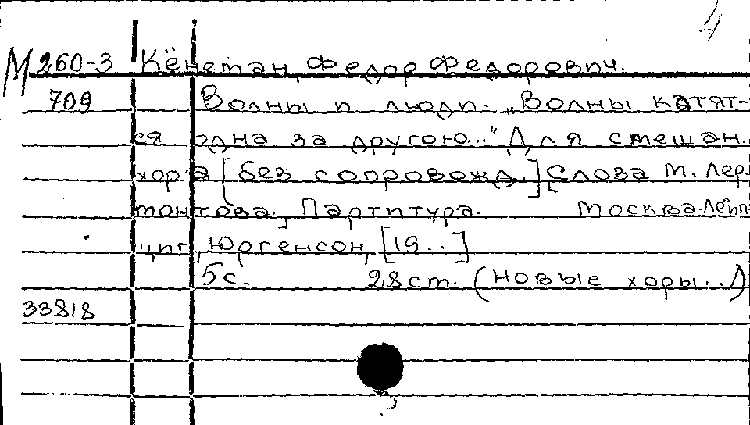 4
М 260-3 Кёнеман, Федор Федорович.
709 Волны и люди. „Волны катят-
ся одна за другою..." Для смешан.
хора [без сопровожд.] [Слова М. Лер
монтова.] Партитура. Москва-Лейп
циг, Юргенсон, [19..]
5с. 28 ст. (Новые хоры...)
33818